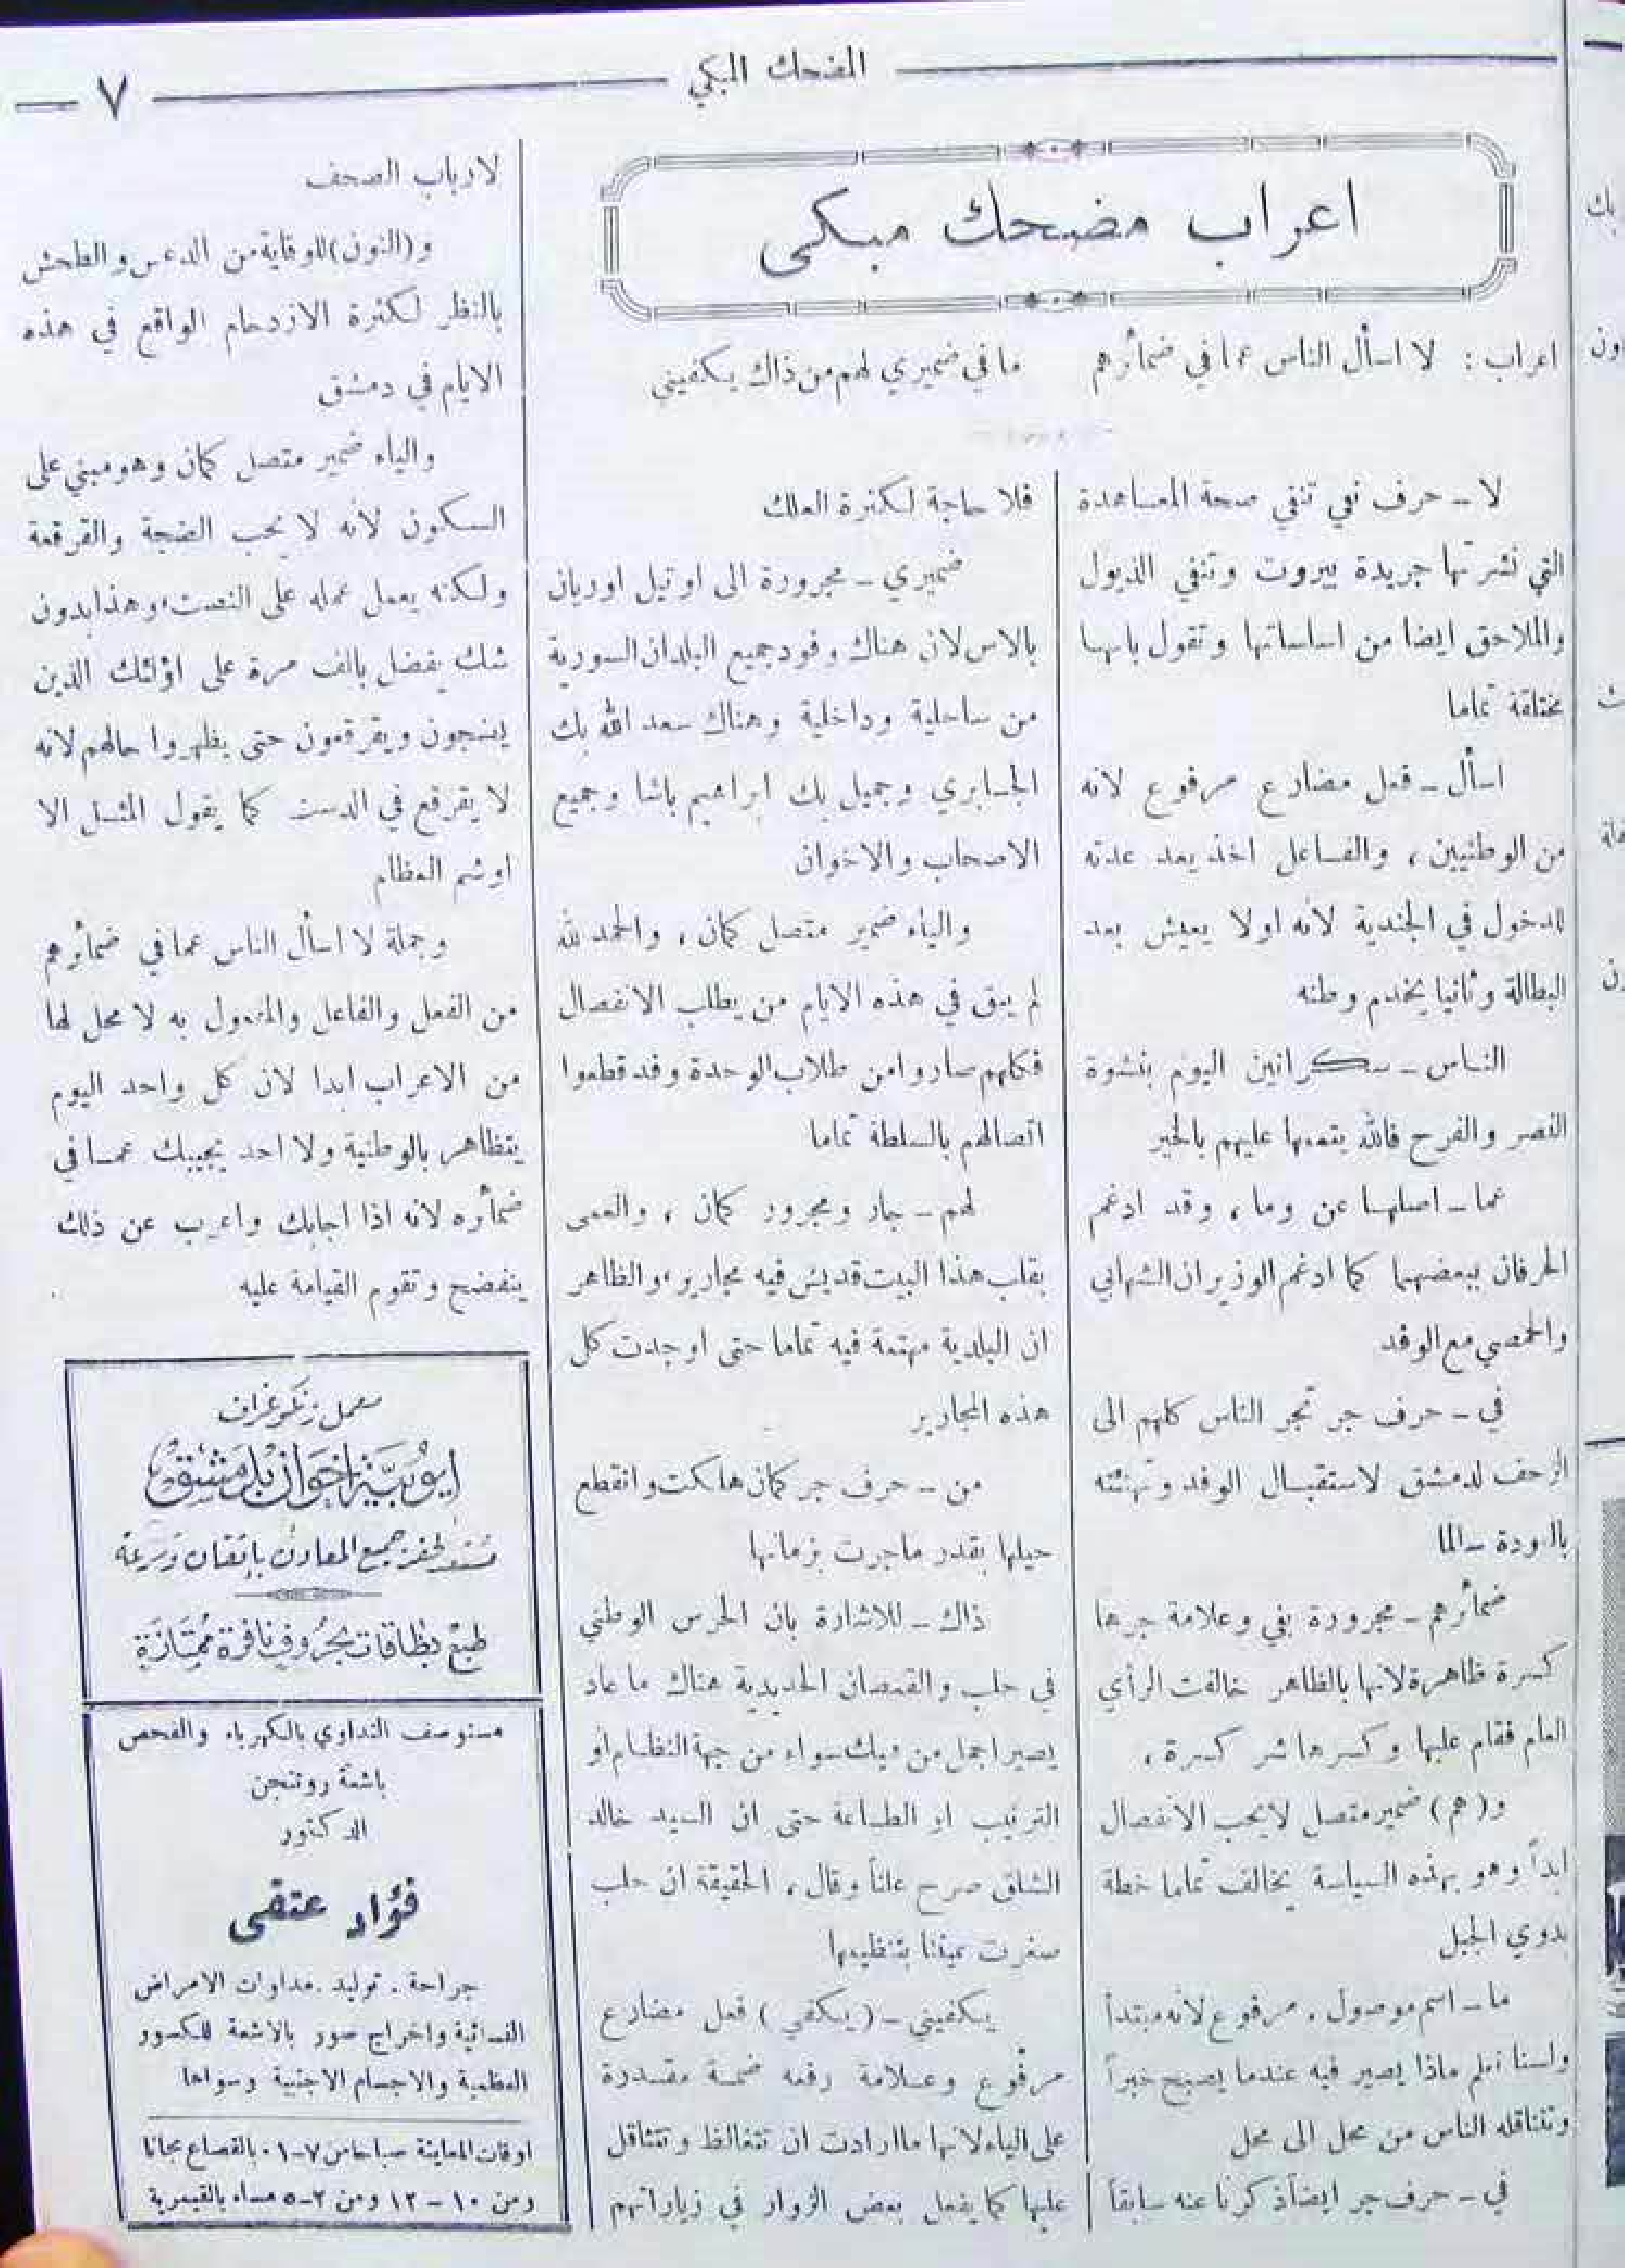 المضحك المبكي
٧
اعراب مضحك مبكي
اعراب : لا اسأل الناس عما في ضمائرهم ما في ضميري لهم من ذاك يكفيني
لا ـ حرف نفي تنفي صحة المعاهدة
التي نشرتها جريدة بيروت وتنفي الذيول
والملاحق ايضا من اساساتها وتقول بانها
مختلقة تماما
اسأل ـ فعل مضارع مرفوع لانه
من الوطنيين ، والفاعل اخذ يعد عدته
للدخول في الجندية لانه اولا يعيش بعد
البطالة وثانيا يخدم وطنه
الناس ـ سكرانين اليوم بنشوة
النصر والفرح فالله يتممها عليهم بالخير
عما ـ اصلها عن وما ، وقد ادغم
الحرفان ببعضهما كما ادغم الوزيران الشهابي
والحمصي مع الوفد
في ـ حرف جر تجر الناس كلهم الى
الزحف لدمشق لاستقبال الوفد وتهنئته
بالعودة سالما
ضمائرهم ـ مجرورة بفي وعلامة جرها
كسرة ظاهرة لانها بالظاهر خالفت الرأي
العام فقام عليها وكسرها شر كسرة ،
و(هم) ضمير متصل لايحب الانفصال
ابداً وهو بهذه السياسة يخالف تماما خطة
بدوي الجبل
ما ـ اسم موصول . مرفوع لانه مبتدأ
ولسنا نعلم ماذا يصير فيه عندما يصبح خبراً
وتتناقله الناس من محل الى محل
في ـ حرف جر ايضاً ذكرنا عنه سابقاً
فلا حاجة لكثرة العلك
ضميري ـ مجرورة الى اوتيل اوريان
بالاس لان هناك وفود جميع البلدان السورية
من ساحلية وداخلية وهناك سعد الله بك
الجابري وجميل بك ابراهيم باشا وجميع
الاصحاب والاخوان
والياء ضمير متصل كمان ، والحمد لله
لم يبق في هذه الايام من يطلب الانفصال
فكلهم صاروا من طلاب الوحدة وقد قطعوا
اتصالهم بالسلطة تماما
لهم ـ جار ومجرور كمان ، والعمى
بقلب هذا البيت قديش فيه مجارير ، والظاهر
ان البلدية مهتمة فيه تماما حتى اوجدت كل
هذه المجارير
من ـ حرف جر كمان هلكت وانقطع
حيلها بقدر ما جرت بزمانها
ذاك ـ للاشارة بان الحرس الوطني
في حلب والقمصان الحديدية هناك ما عاد
يصير اجمل من هيك سواء من جهة النظام او
الترتيب او الطاعة حتى ان السيد خالد
الشلق صرح علناً وقال ، الحقيقة ان حلب
صغرت عيننا بتنظيمها
يكفيني ـ (يكفي) فعل مضارع
مرفوع وعلامة رفعه ضمة مقدرة
على الياء لانها ما ارادت ان تتغالظ وتتثاقل
عليها كما يفعل بعض الزوار في زياراتهم
لارباب الصحف
و(النون) للوقاية من الدعس والطحش
بالنظر لكثرة الازدحام الواقع في هذه
الايام في دمشق
والياء ضمير متصل كمان وهو مبني على
السكون لانه لا يحب الضجة والقرقعة
ولكنه يعمل عمله على النصت ، وهذا بدون
شك يفضل بالف مرة على اؤلئك الذين
يضجون ويقرقعون حتى يظهروا حالهم لانه
لا يقرقع في الدست كما يقول المثل الا
اوشم العظام
وجملة لا اسأل الناس عما في ضمائرهم
من الفعل والفاعل والمفعول به لا محل لها
من الاعراب ابدا لان كل واحد اليوم
يتظاهر بالوطنية ولا احد يجيبك عما في
ضمائره لانه اذا اجابك واعرب عن ذلك
ينفضح وتقوم القيامة عليه
معمل زنكوغراف
ايوبية اخوان بدمشق
مستعد لحفر جميع المعادن باتقان وسرعة
طبع بطاقات بحروف نافرة ممتازة
مستوصف التداوي بالكهرباء والفحص
باشعة رونتجن
الدكتور
فؤاد عتقي
جراحة . توليد . مداوات الامراض
النسائية واخراج صور بالاشعة للكسور
العظمية والاجسام الاجنبية وسواها
اوقات المعاينة صباحا من ٧-١٠ بالقصاع مجانا
ومن ١٠ - ١٢ ومن ٢-٥ مساء بالقيمرية